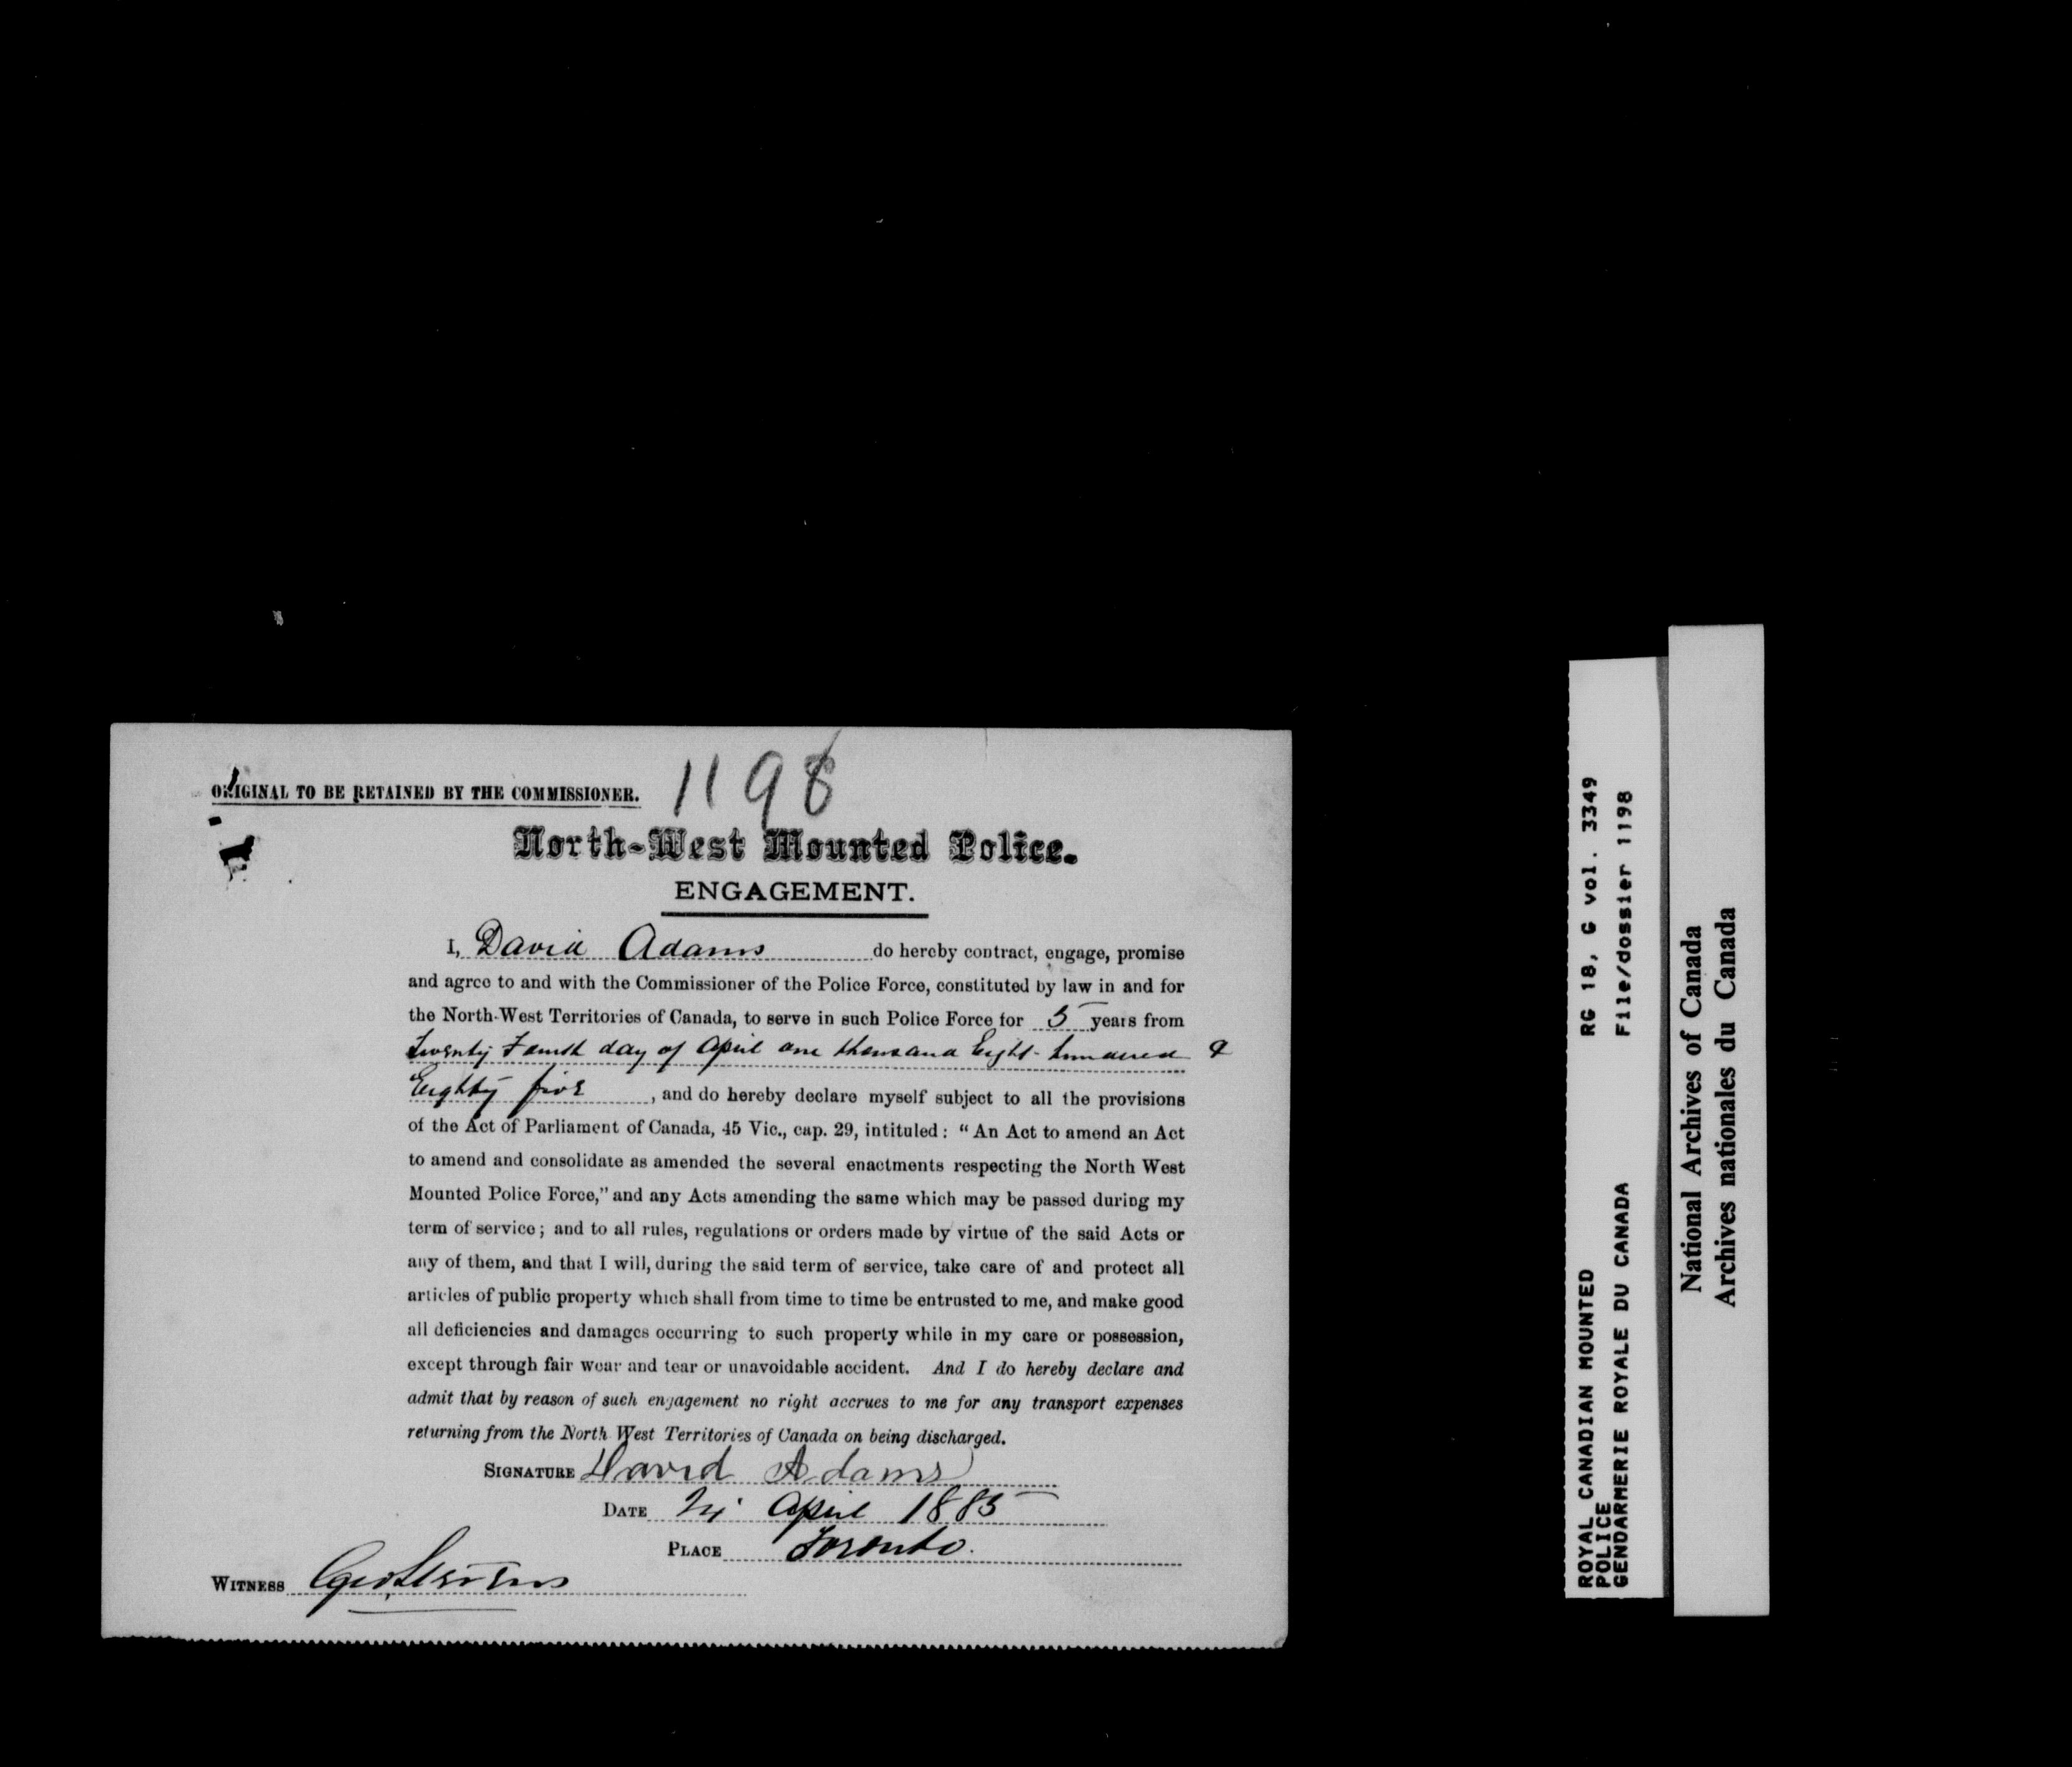 ORIGINAL TO BE RETAINED BY THE COMMISSIONER.
1198
North-West Mounted Police.
ENGAGEMENT.
I, David Adams do hereby contract, engage, promise
and agree to and with the Commissioner of the Police Force, constituted by law in and for
the North-West Territories of Canada, to serve in such Police Force for 5 years from
Twenty Fourth day of April one thousand Eight-hundered &
Eighty five, and do hereby declare myself subject to all the provisions
of the Act of Parliament of Canada, 45 Vic., cap. 29, intituled: "An Act to amend an Act
to amend and consolidate as amended the several enactments respecting the North West
Mounted Police Force," and any Acts amending the same which may be passed during my
term of service; and to all rules, regulations or orders made by virtue of the said Acts or
any of them, and that I will, during the said term of service, take care of and protect all
articles of public property which shall from time to time be entrusted to me, and make good
all deficiencies and damages occurring to such property while in my care or possession,
except through fair wear and tear or unavoidable accident. And I do hereby declare and
admit that by reason of such engagement no right accrues to me for any transport expenses
returning from the North West Territories of Canada on being discharged.
SIGNATURE David Adams
DATE 24 April 1885
PLACE Toronto.
WITNESS Geo Stevens
ROYAL CANADIAN MOUNTED RG 18, G vol. 3349
POLICE
GENDARMERIE ROYALE DU CANADA File/dossier 1198
National Archives of Canada
Archives nationales du Canada